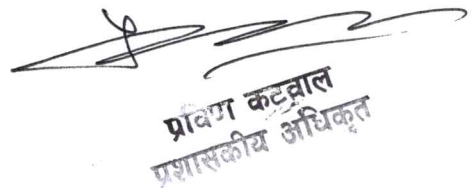 प्रविण कटवाल
प्रशासकीय अधिकृत